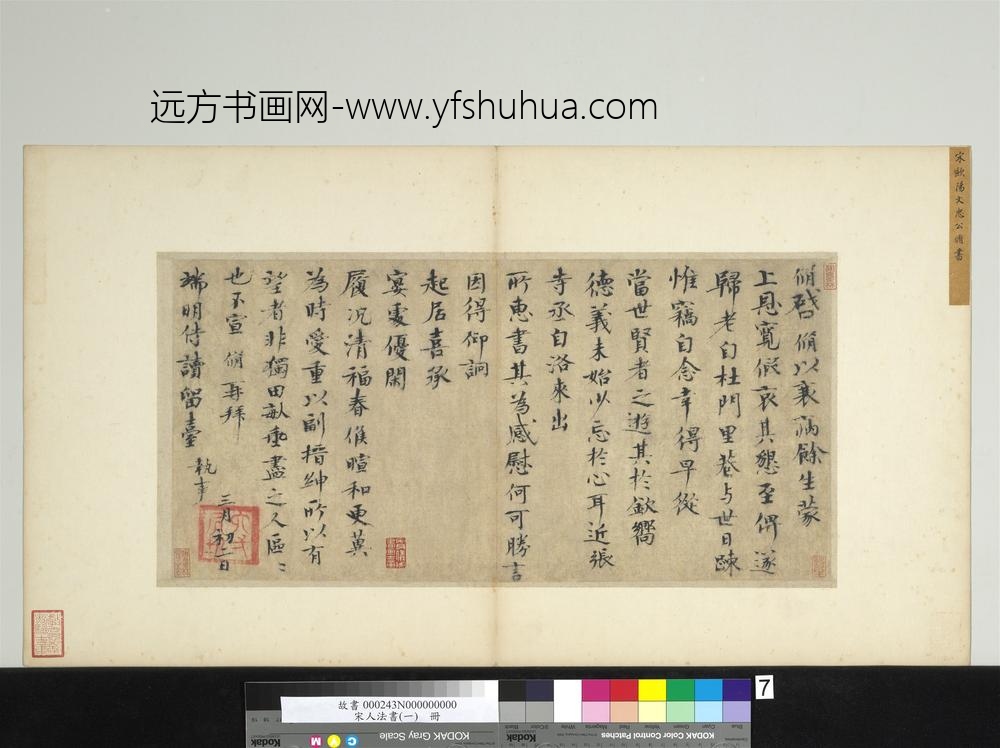 远方书画网-www.yfshuhua.com
宋歐陽文忠公脩書
脩啓脩以衰病餘生蒙
上恩寬假哀其懇至俾遂
歸老自杜門里巷与世日踈
惟竊自念幸得早從
當世賢者之遊其於欽嚮
德義未始少忘於心耳近張
寺丞自洛來出
所惠書其為感慰何可勝言
因得仰詢
起居喜承
宴處優閑
履況清福春候暄和更冀
為時愛重以副搢紳所以有
望者非獨田畝垂盡之人區〻
也不宣 脩再拜
端明侍讀留臺 執事
三月初二日
7
故書 000243N000000000
宋人法書(一) 冊
KODAK Gray Scale
KODAK Color Control Patches
Kodak
C
Y
M